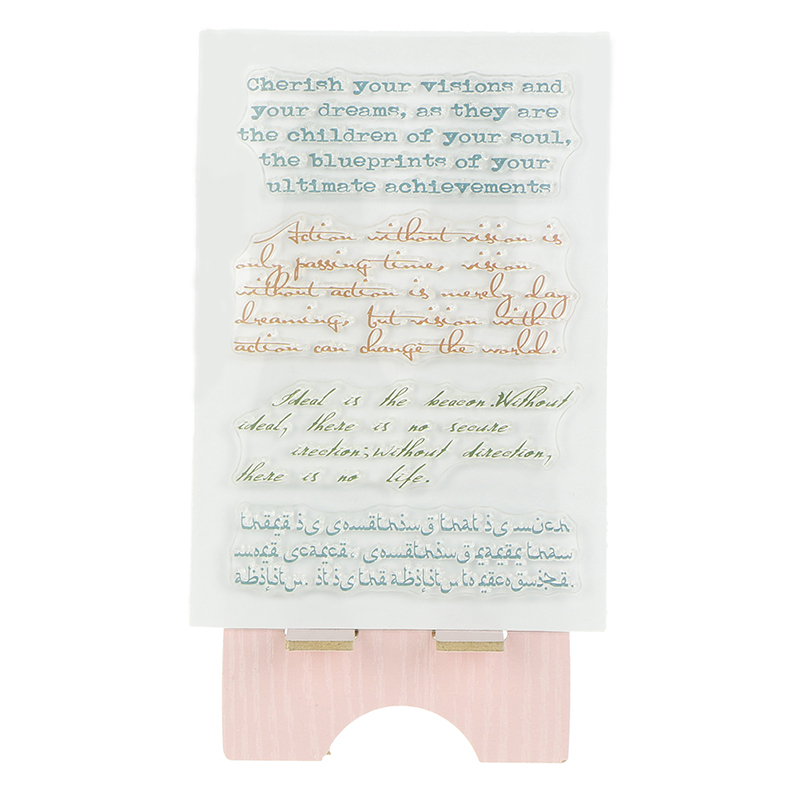 Cherish your visions and
your dreams, as they are
the children of your soul,
the blueprints of your
ultimate achievements
Action without vision is
only passing time, vision
without action is merely day
dreaming, but vision with
action can change the world.
Ideal is the beacon.Without
ideal, there is no secure
irection;without direction,
there is no life.
there is something that is much
more scarce, something rarer than
ability. it is the ability to recognize.